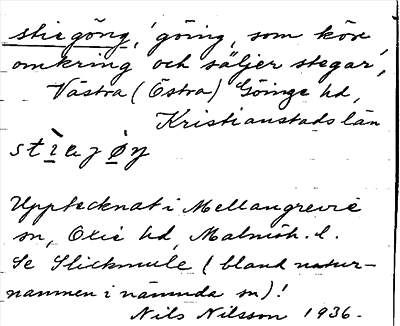 stiegöng, 'göing, somköre
omkring och säljer stegar',
Västra (Östra) Göinge hd,
Kristianstads län
Upptecknat i Mellangrevie
sn, Oxie hd, Malmöh. l.
Se Slickmule (bland natur-
namnen i nämnda sn)!
Nils Nilsson 1936.